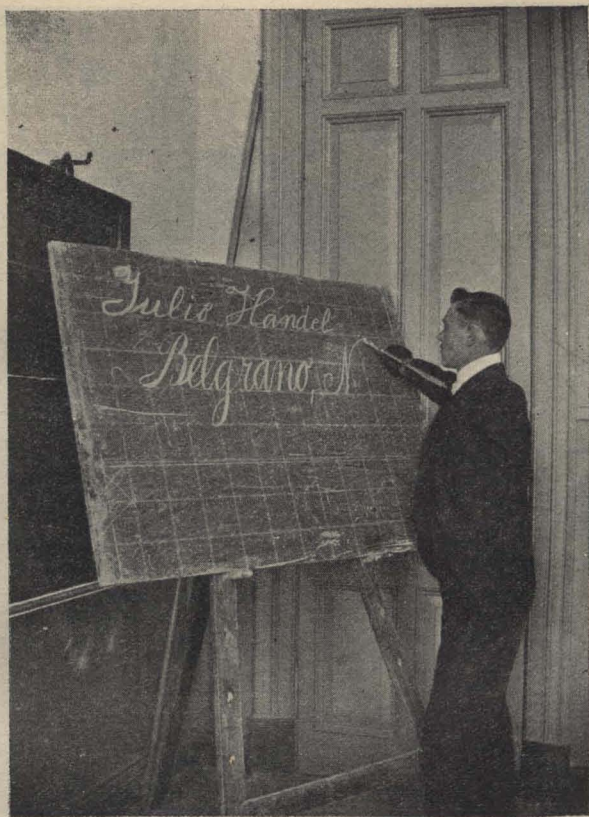 Julio Händel
Belgrano, N.